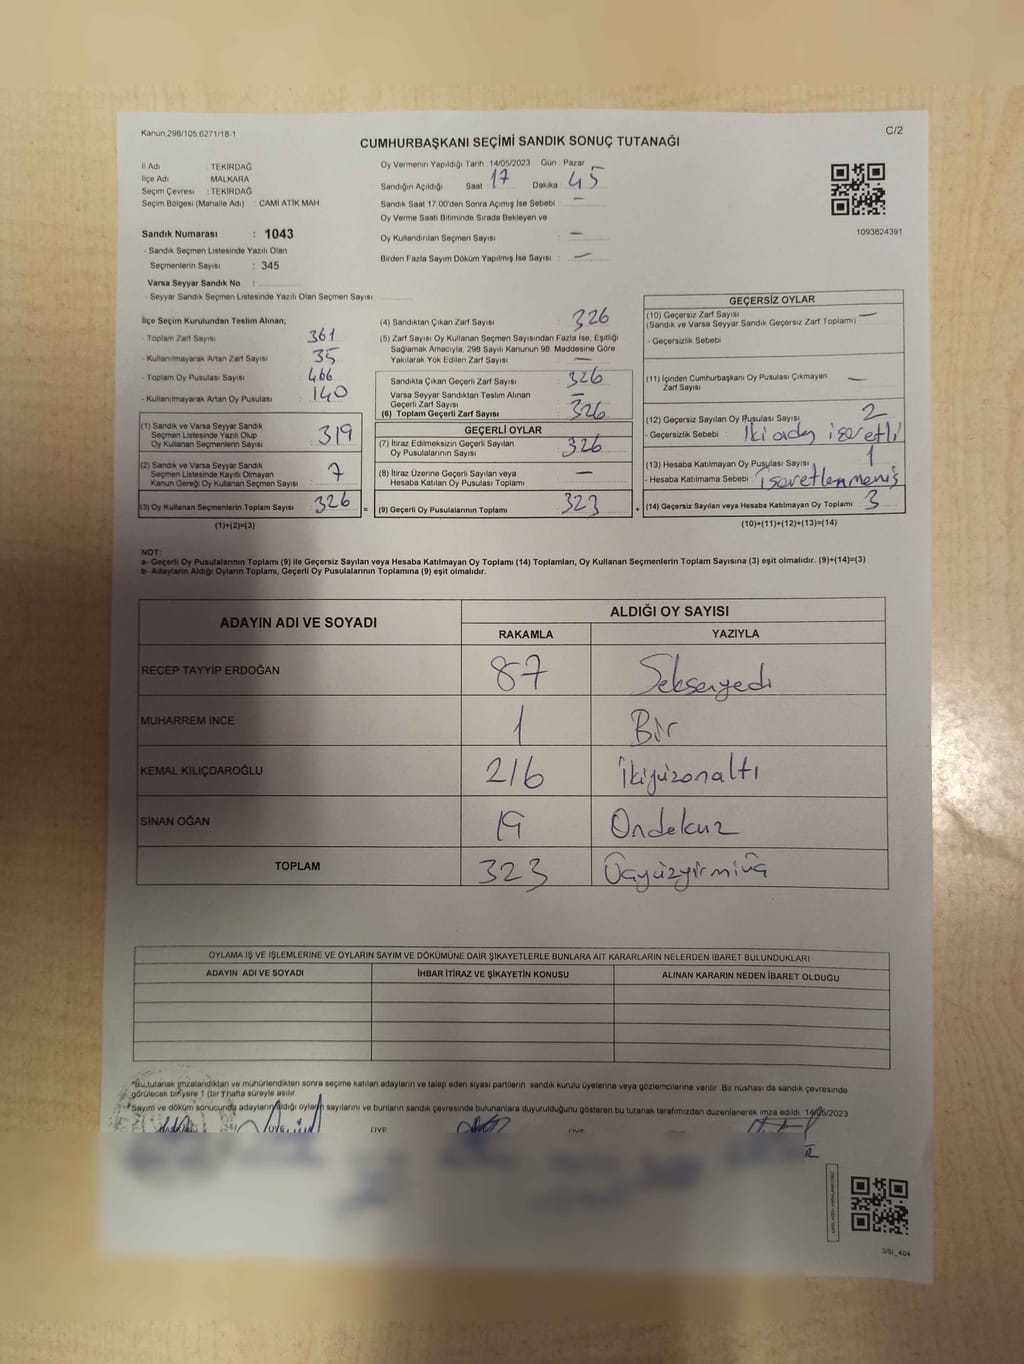 Kanun.298/105,6271/18-1
C/2
CUMHURBAŞKANI SEÇİMİ SANDIK SONUÇ TUTANAĞI
İl Adı : TEKİRDAĞ
İlçe Adı : MALKARA
Seçim Çevresi : TEKİRDAĞ
Seçim Bölgesi (Mahalle Adı) : CAMİ ATİK MAH
Sandık Numarası : 1043
- Sandık Seçmen Listesinde Yazılı Olan
Seçmenlerin Sayısı : 345
Varsa Seyyar Sandık No :
- Seyyar Sandık Seçmen Listesinde Yazılı Olan Seçmen Sayısı
Oy Vermenin Yapıldığı Tarih : 14/05/2023 Gün : Pazar
Sandığın Açıldığı Saat : 17 Dakika : 45
Sandık Saat 17:00'den Sonra Açılmış İse Sebebi : —
Oy Verme Saati Bitiminde Sırada Bekleyen ve
Oy Kullandırılan Seçmen Sayısı : —
Birden Fazla Sayım Döküm Yapılmış İse Sayısı : —
1093824391
İlçe Seçim Kurulundan Teslim Alınan;
- Toplam Zarf Sayısı : 361
- Kullanılmayarak Artan Zarf Sayısı : 35
- Toplam Oy Pusulası Sayısı : 466
- Kullanılmayarak Artan Oy Pusulası : 140
(1) Sandık ve Varsa Seyyar Sandık
Seçmen Listesinde Yazılı Olup
Oy Kullanan Seçmenlerin Sayısı : 319
(2) Sandık ve Varsa Seyyar Sandık
Seçmen Listesinde Kayıtlı Olmayan
Kanun Gereği Oy Kullanan Seçmen Sayısı : 7
(3) Oy Kullanan Seçmenlerin Toplam Sayısı : 326
(1)+(2)=(3)
(4) Sandıktan Çıkan Zarf Sayısı : 326
(5) Zarf Sayısı Oy Kullanan Seçmen Sayısından Fazla İse, Eşitliği
Sağlamak Amacıyla, 298 Sayılı Kanunun 98. Maddesine Göre
Yakılarak Yok Edilen Zarf Sayısı : —
Sandıkta Çıkan Geçerli Zarf Sayısı : 326
Varsa Seyyar Sandıktan Teslim Alınan
Geçerli Zarf Sayısı : —
(6) Toplam Geçerli Zarf Sayısı : 326
GEÇERLİ OYLAR
(7) İtiraz Edilmeksizin Geçerli Sayılan
Oy Pusulalarının Sayısı : 326
(8) İtiraz Üzerine Geçerli Sayılan veya
Hesaba Katılan Oy Pusulası Toplamı : —
= (9) Geçerli Oy Pusulalarının Toplamı : 323 +
GEÇERSİZ OYLAR
(10) Geçersiz Zarf Sayısı : —
(Sandık ve Varsa Seyyar Sandık Geçersiz Zarf Toplamı)
- Geçersizlik Sebebi :
(11) İçinden Cumhurbaşkanı Oy Pusulası Çıkmayan
Zarf Sayısı : —
(12) Geçersiz Sayılan Oy Pusulası Sayısı : 2
- Geçersizlik Sebebi : İki aday işaretli
(13) Hesaba Katılmayan Oy Pusulası Sayısı : 1
- Hesaba Katılmama Sebebi : İşaretlenmemiş
(14) Geçersiz Sayılan veya Hesaba Katılmayan Oy Toplamı : 3
(10)+(11)+(12)+(13)=(14)
NOT:
a- Geçerli Oy Pusulalarının Toplamı (9) ile Geçersiz Sayılan veya Hesaba Katılmayan Oy Toplamı (14) Toplamları, Oy Kullanan Seçmenlerin Toplam Sayısına (3) eşit olmalıdır. (9)+(14)=(3)
b- Adayların Aldığı Oyların Toplamı, Geçerli Oy Pusulalarının Toplamına (9) eşit olmalıdır.
ADAYIN ADI VE SOYADI
ALDIĞI OY SAYISI
RAKAMLA YAZIYLA
RECEP TAYYİP ERDOĞAN 87 Seksenyedi
MUHARREM İNCE 1 Bir
KEMAL KILIÇDAROĞLU 216 İkiyüzonaltı
SİNAN OĞAN 19 Ondokuz
TOPLAM 323 Üçyüzyirmiüç
OYLAMA İŞ VE İŞLEMLERİNE VE OYLARIN SAYIM VE DÖKÜMÜNE DAİR ŞİKAYETLERLE BUNLARA AİT KARARLARIN NELERDEN İBARET BULUNDUKLARI
ADAYIN ADI VE SOYADI İHBAR İTİRAZ VE ŞİKAYETİN KONUSU ALINAN KARARIN NEDEN İBARET OLDUĞU
*Bu tutanak imzalandıktan ve mühürlendikten sonra seçime katılan adayların ve talep eden siyasi partilerin sandık kurulu üyelerine veya gözlemcilerine verilir. Bir nüshası da sandık çevresinde
görülecek bir yere 1 (bir) hafta süreyle asılır.
*Sayım ve döküm sonucunda adayların aldığı oyların sayılarını ve bunların sandık çevresinde bulunanlara duyurulduğunu gösteren bu tutanak tarafımızdan düzenlenerek imza edildi. 14/05/2023
BAŞKAN ÜYE ÜYE ÜYE ÜYE
SSİ_404